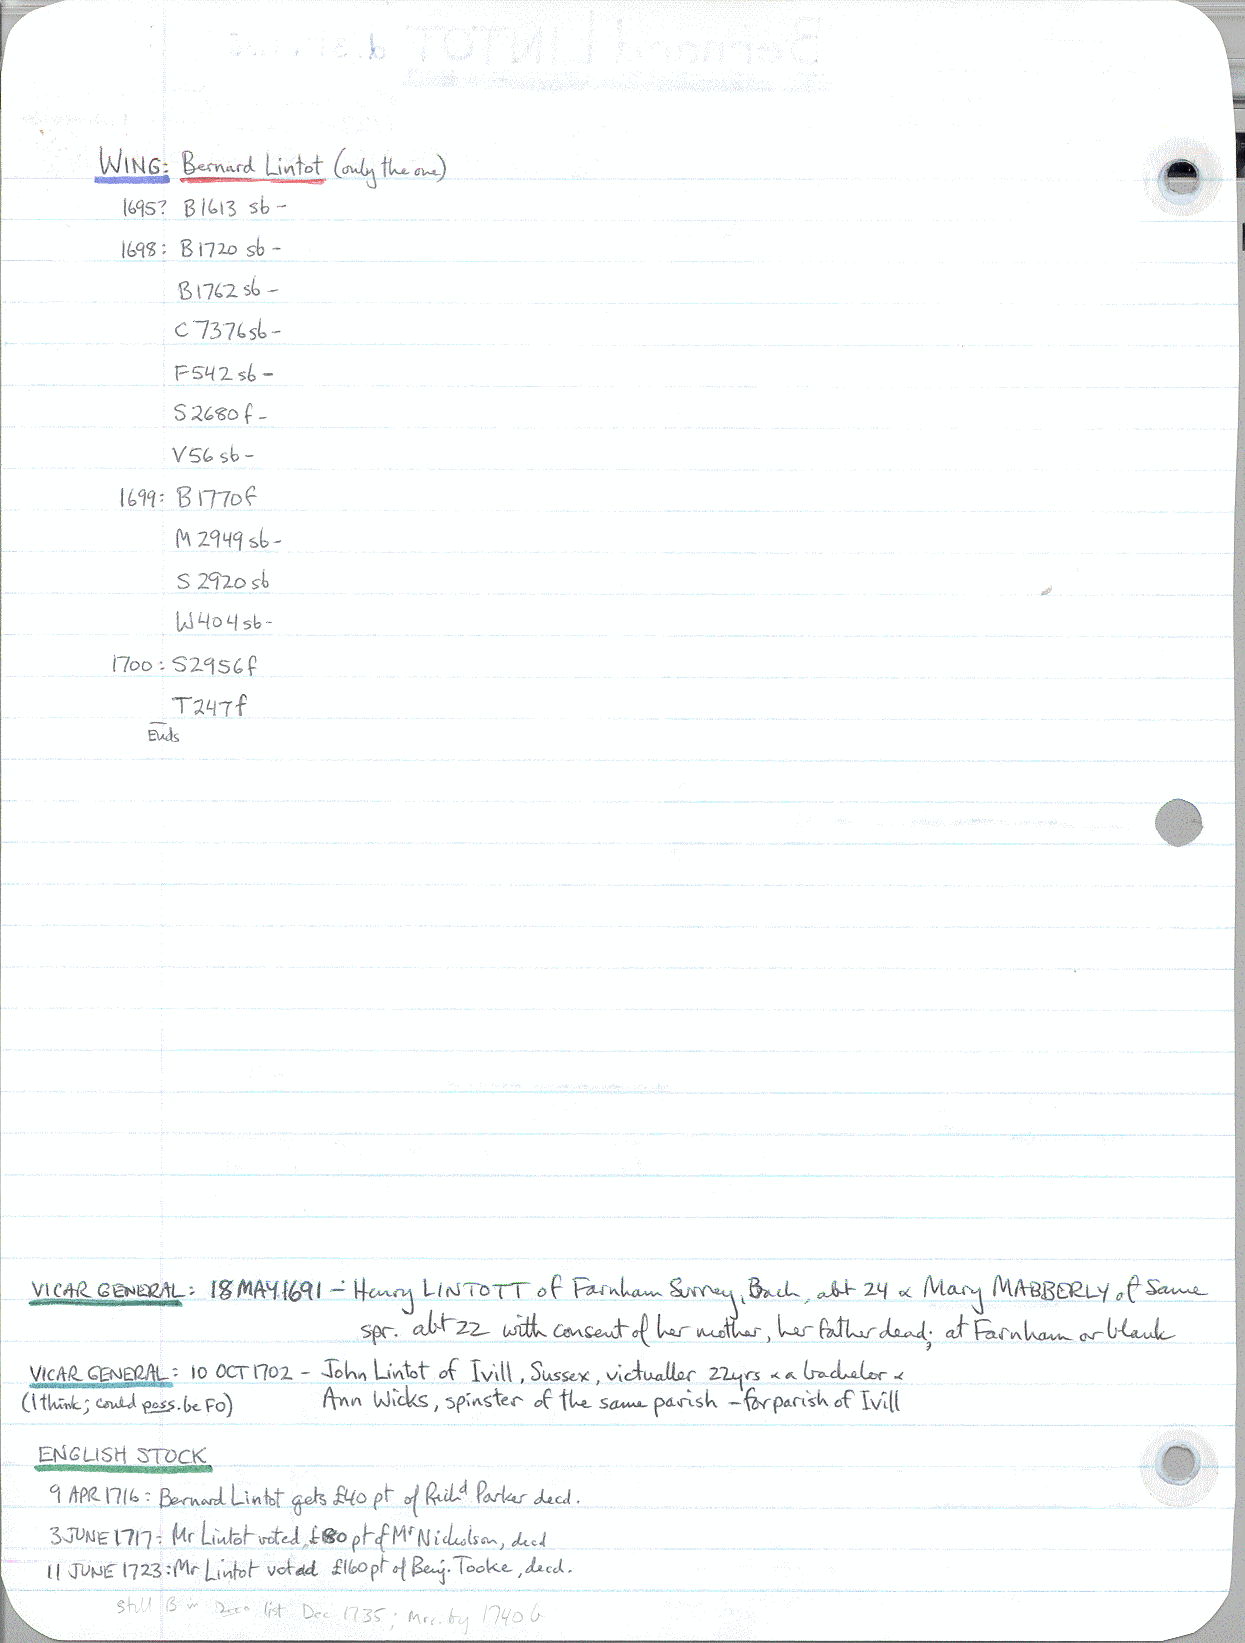 WING: Bernard Lintot (only the one)
1695? B1613 sb -
1698: B1720 sb -
B1762 sb -
C7376 sb -
F542 sb -
S2680 f -
V56 sb -
1699: B1770f
M2949 sb -
S2920 sb
W404 sb -
1700: S2956f
T247f
Ends
VICAR GENERAL: 18 MAY 1691 - Henry LINTOTT of Farnham Surrey, Bach, abt 24 & Mary MABBERLY of Same
spr. abt 22 with consent of her mother, her father dead; at Farnham or blank
VICAR GENERAL: 10 OCT 1702 - John Lintot of Ivill, Sussex, victualler 22yrs & a bachelor &
(I think; could poss. be FO) Ann Wicks, spinster of the same parish - for parish of Ivill
ENGLISH STOCK
9 APR 1716: Bernard Lintot gets £40 pt of Richd Parker decd.
3 JUNE 1717: Mr Lintot voted £80 pt of Mr Nicholson, decd
11 JUNE 1723: Mr Lintot voted £160 pt of Benj. Tooke, decd.
still B in list Dec 1735; Mrc. by 1740 b